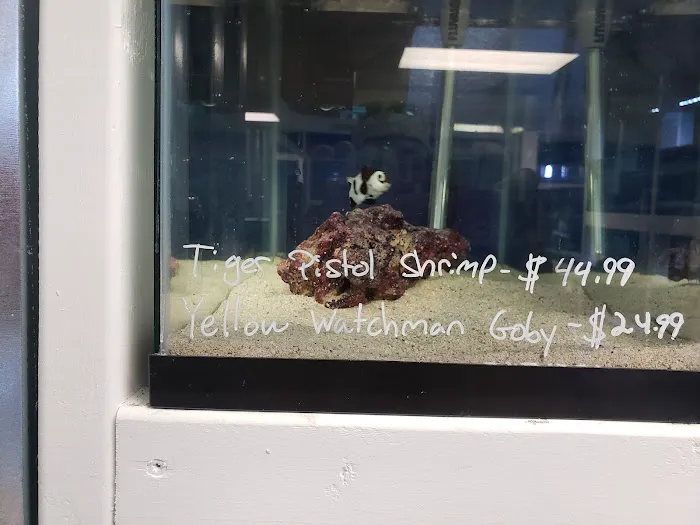 Tiger Pistol Shrimp - $44.99
Yellow Watchman Goby - $24.99